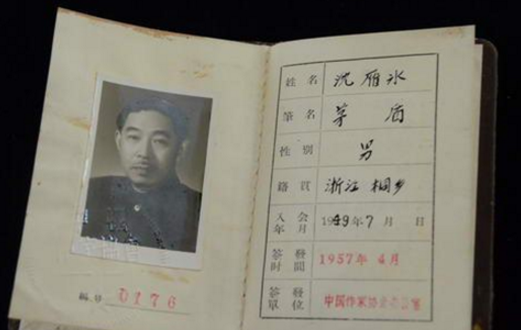 編号 0176
姓名 沈雁冰
筆名 茅盾
性别 男
籍貫 浙江 桐乡
入会年月 1949年7月 日
簽發时間 1957年4月
簽發單位